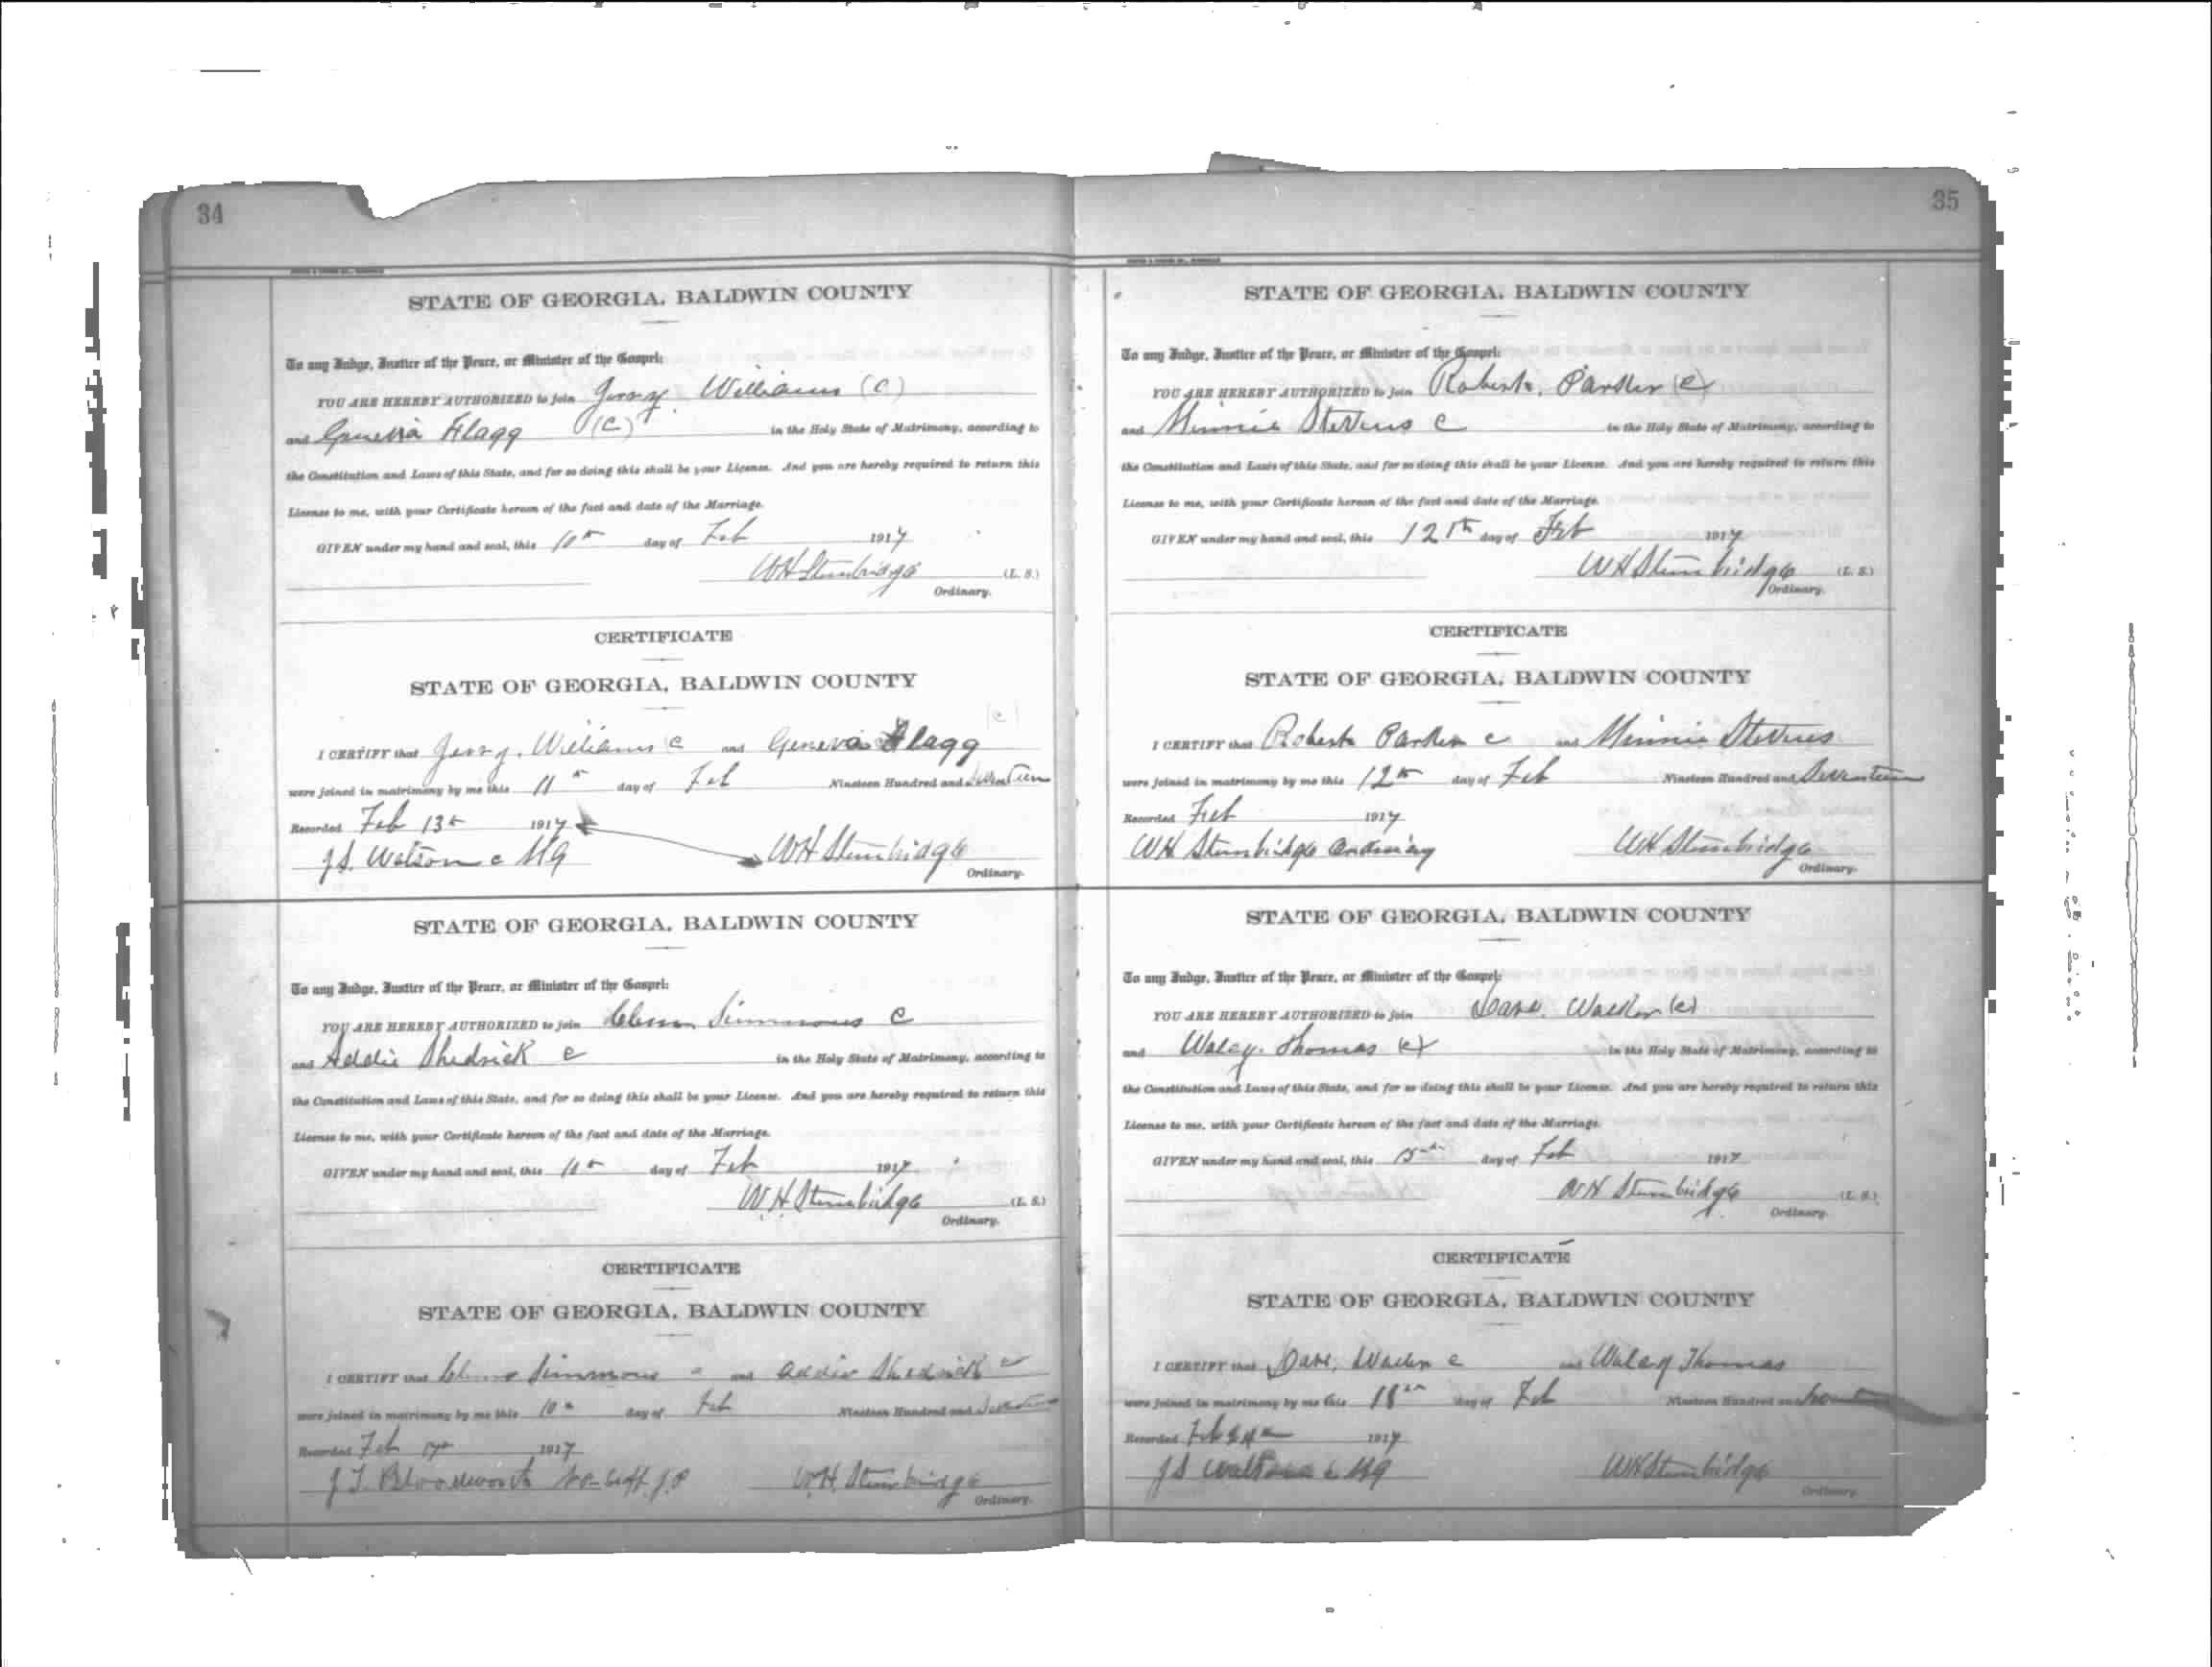 34
STATE OF GEORGIA, BALDWIN COUNTY
To any Judge, Justice of the Peace, or Minister of the Gospel:
YOU ARE HEREBY AUTHORIZED to join Williams (C)
and Flagg (C) in the Holy State of Matrimony, according to
the Constitution and Laws of this State, and for so doing this shall be your License. And you are hereby required to return this
License to me, with your Certificate hereon of the fact and date of the Marriage.
GIVEN under my hand and seal, this 10th day of Feb 1917
WH Stembridge (L. S.)
Ordinary.
CERTIFICATE
STATE OF GEORGIA, BALDWIN COUNTY
I CERTIFY that Williams C and Geneva Flagg
were joined in matrimony by me this 11th day of Feb Nineteen Hundred and Seventeen
Recorded Feb 13th 1917
J.S. Watson c MG WH Stembridge
Ordinary.
STATE OF GEORGIA, BALDWIN COUNTY
To any Judge, Justice of the Peace, or Minister of the Gospel:
YOU ARE HEREBY AUTHORIZED to join Simmons C
and Addie Shedrick C in the Holy State of Matrimony, according to
the Constitution and Laws of this State, and for so doing this shall be your License. And you are hereby required to return this
License to me, with your Certificate hereon of the fact and date of the Marriage.
GIVEN under my hand and seal, this 10th day of Feb 1917
W.H. Stembridge (L. S.)
Ordinary.
CERTIFICATE
STATE OF GEORGIA, BALDWIN COUNTY
I CERTIFY that Simmons c and Addie Shedrick c
were joined in matrimony by me this 10th day of Feb Nineteen Hundred and Seventeen
Recorded Feb 1917
J.T. Bloodworth J.P W.H. Stembridge
Ordinary.
35
STATE OF GEORGIA, BALDWIN COUNTY
To any Judge, Justice of the Peace, or Minister of the Gospel:
YOU ARE HEREBY AUTHORIZED to join Parker (C)
and Minnie Stevens C in the Holy State of Matrimony, according to
the Constitution and Laws of this State, and for so doing this shall be your License. And you are hereby required to return this
License to me, with your Certificate hereon of the fact and date of the Marriage.
GIVEN under my hand and seal, this 12th day of Feb 1917
WH Stembridge (L. S.)
Ordinary.
CERTIFICATE
STATE OF GEORGIA, BALDWIN COUNTY
I CERTIFY that Parker c and Minnie Stevens
were joined in matrimony by me this 12th day of Feb Nineteen Hundred and Seventeen
Recorded Feb 1917
WH Stembridge Ordinary WH Stembridge
Ordinary.
STATE OF GEORGIA, BALDWIN COUNTY
To any Judge, Justice of the Peace, or Minister of the Gospel:
YOU ARE HEREBY AUTHORIZED to join Dave Walker (c)
and Thomas (c) in the Holy State of Matrimony, according to
the Constitution and Laws of this State, and for so doing this shall be your License. And you are hereby required to return this
License to me, with your Certificate hereon of the fact and date of the Marriage.
GIVEN under my hand and seal, this 15th day of Feb 1917
WH Stembridge (L. S.)
Ordinary.
CERTIFICATE
STATE OF GEORGIA, BALDWIN COUNTY
I CERTIFY that Dave Walker c and Thomas
were joined in matrimony by me this 18th day of Feb Nineteen Hundred and Seventeen
Recorded Feb 1917
J S c MG WH Stembridge
Ordinary.